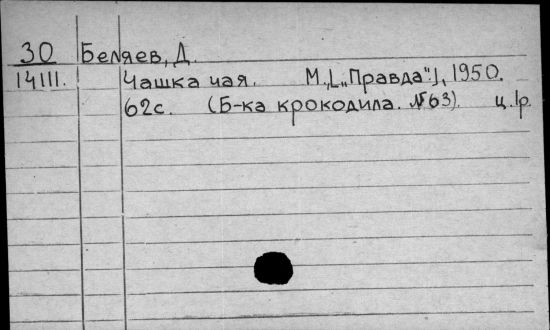 30 Беляев, Д.
14111. Чашка чая. М., [„Правда“], 1950.
62с. (Б-ка крокодила. №63). ц.1р.